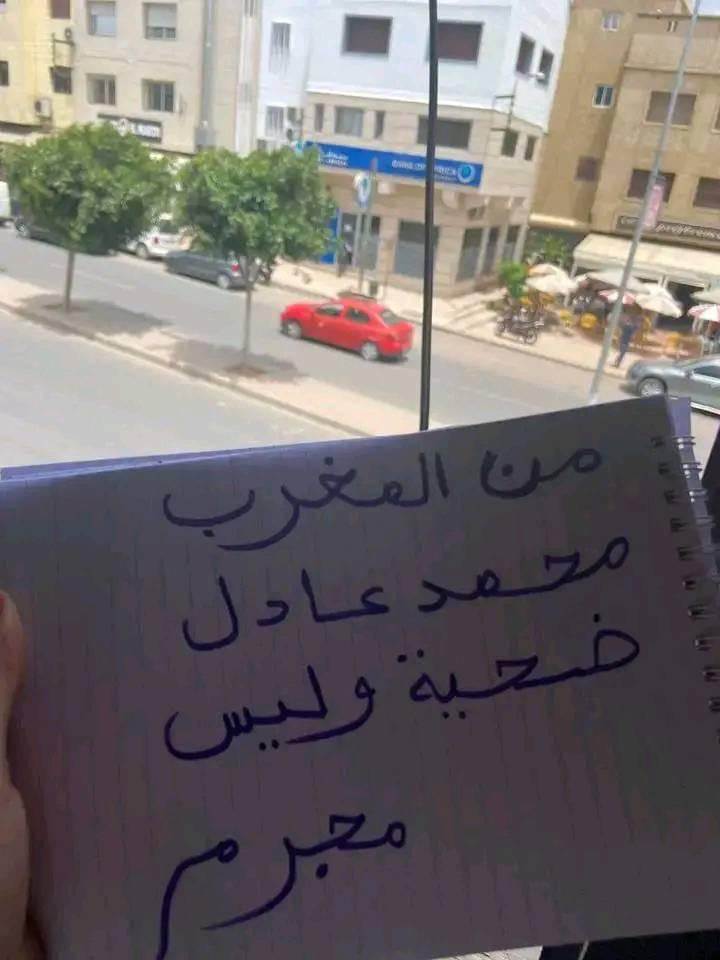 من المغرب
محمد عادل
ضحية وليس
مجرم